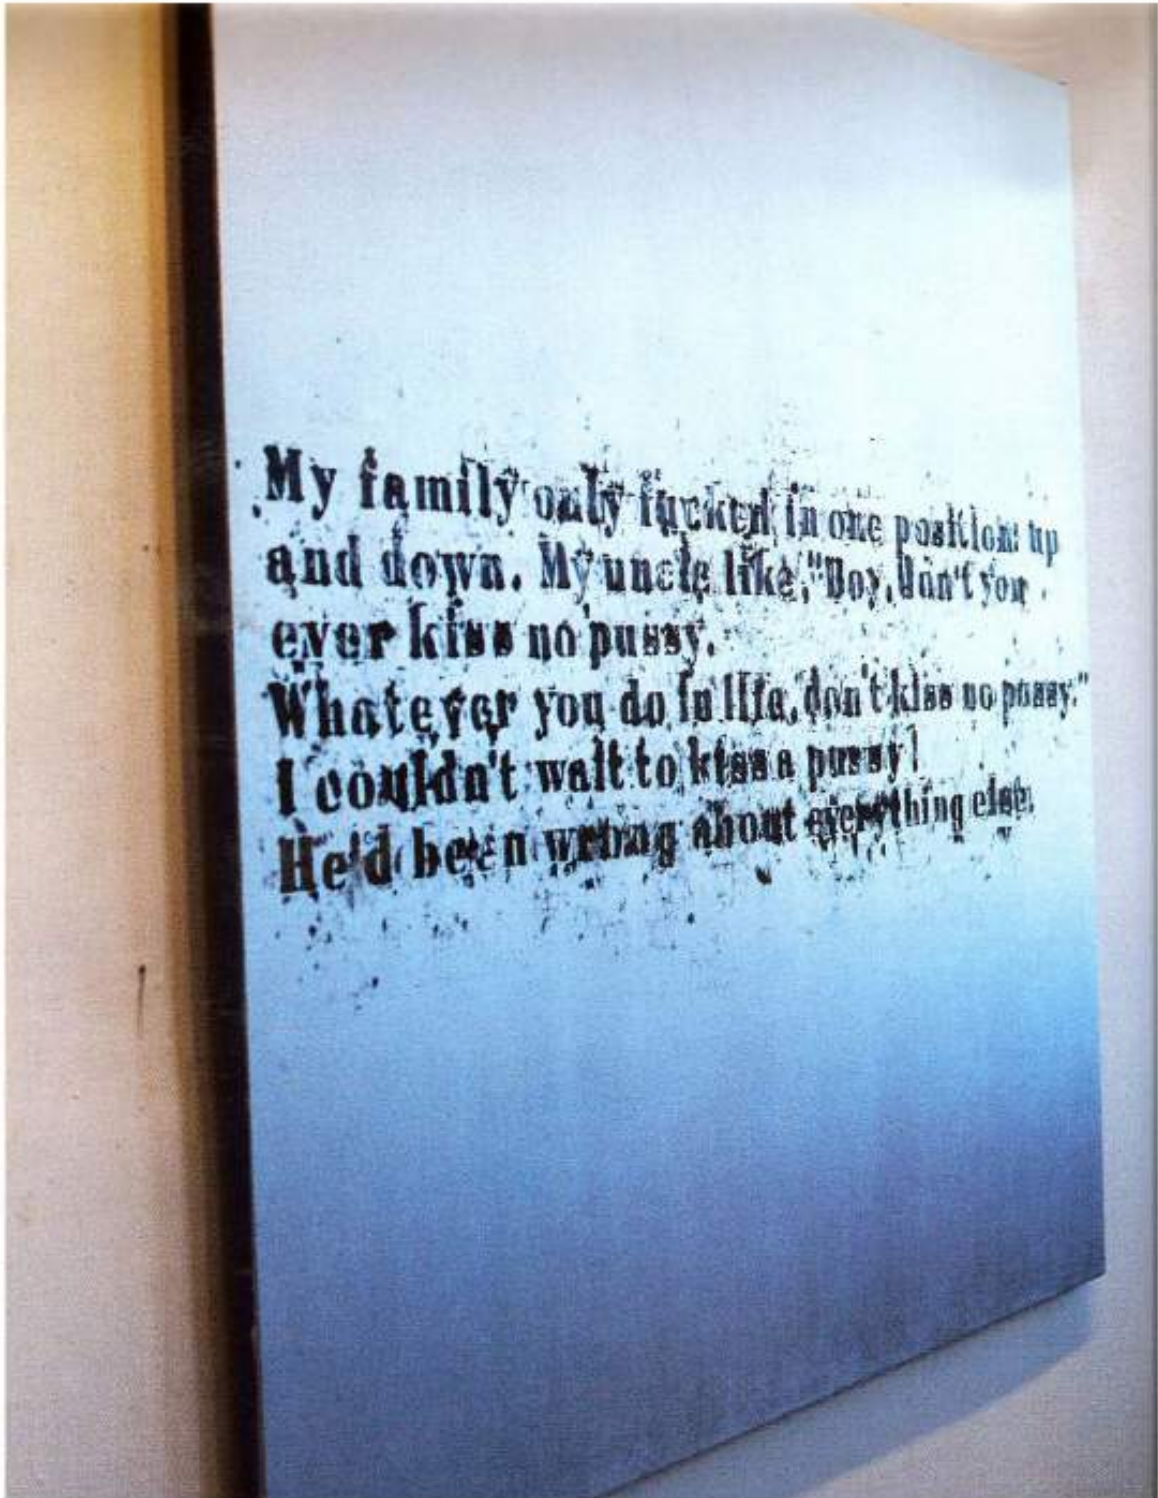 My family only fucked in one position: up
and down. My uncle like, "Boy, don't you
ever kiss no pussy.
Whatever you do in life, don't kiss no pussy."
I couldn't wait to kiss a pussy!
He'd been wrong about everything else.